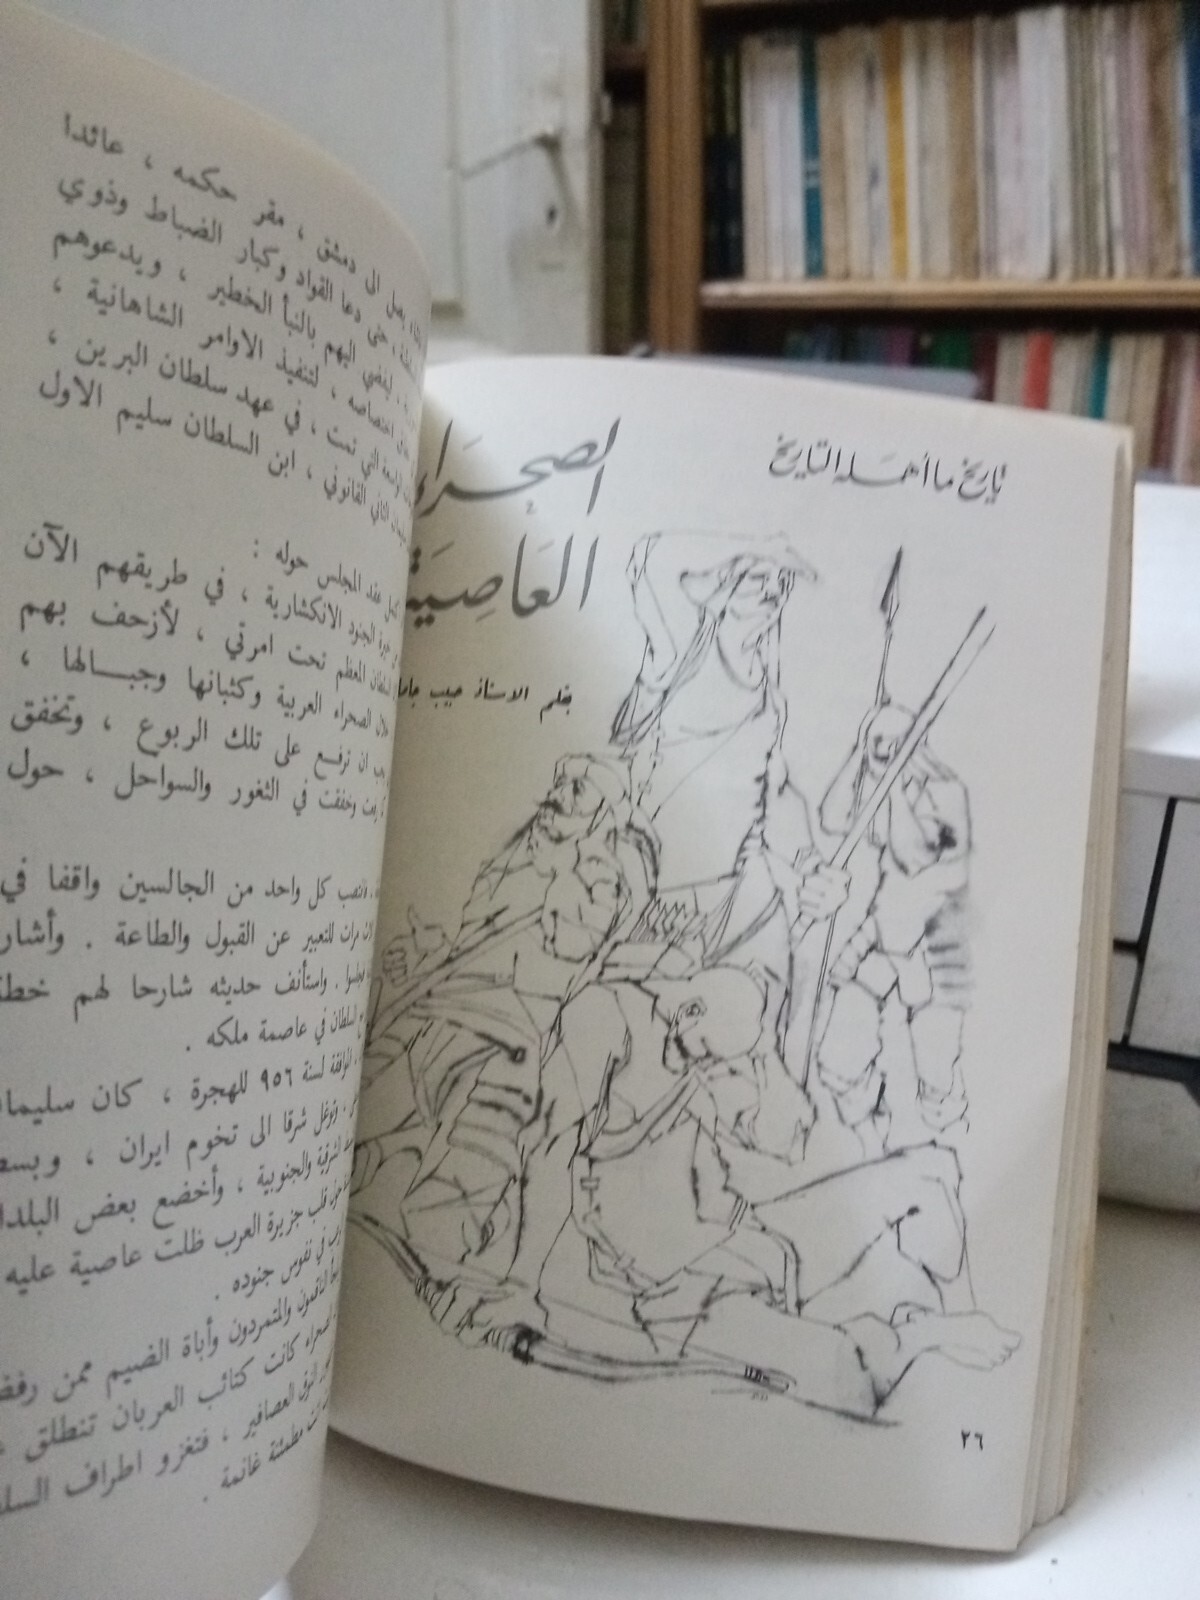 تاريخ ما أهمله التاريخ
الصحراء
العاصية
بقلم الاستاذ حبيب
٢٦
يصل الى دمشق ، مقر حكمه ، عائدا
، حتى دعا القواد وكبار الضباط وذوي
، ليفضي اليهم بالنبأ الخطير ، ويدعوهم
اختصاصه ، لتنفيذ الاوامر الشاهانية ،
التي تمت ، في عهد سلطان البرين ،
القانوني ، ابن السلطان سليم الاول
عقد المجلس حوله :
الجنود الانكشارية ، في طريقهم الآن
السلطان المعظم تحت امرتي ، لأزحف بهم
خلال الصحراء العربية وكثبانها وجبالها ،
ان ترفع على تلك الربوع ، وتخفق
وخفقت في الثغور والسواحل ، حول
، فانتصب كل واحد من الجالسين واقفا في
مرات للتعبير عن القبول والطاعة . وأشار
. واستأنف حديثه شارحا لهم
السلطان في عاصمة ملكه .
الموافقة لسنة ٩٥٦ للهجرة ، كان
، وتوغل شرقا الى تخوم ايران ،
الشرقية والجنوبية ، وأخضع بعض
قلب جزيرة العرب ظلت عاصية عليه
في نفوس جنوده .
والمتمردون وأباة الضيم ممن
الصحراء كانت كتائب العربان تنطلق
العصافير ، فتغزو اطراف
مطمئنة غانمة .